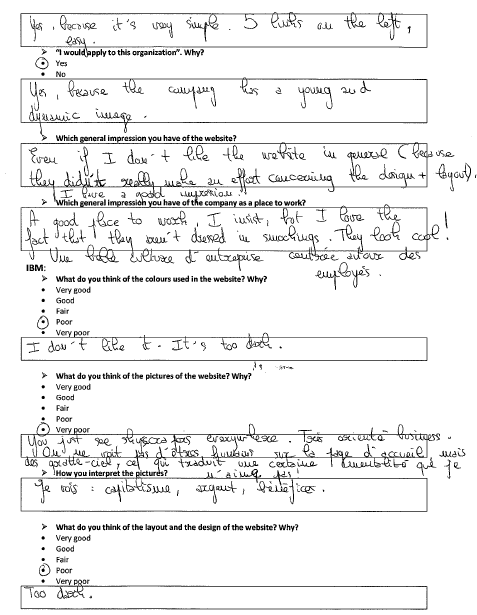 Yes, because it's very simple. 5 links on the left,
easy.
➤ "I would apply to this organization". Why?
• Yes
• No
Yes, because the company has a young and
dynamic image.
➤ Which general impression you have of the website?
Even if I don't like the website in general (because
they didn't really make an effort concerning the design + layout),
I have a good impression!
➤ Which general impression you have of the company as a place to work?
A good place to work, I insist, but I love the
fact that they aren't dressed in smockings. They look cool!
Une belle culture d'entreprise centrée autour des
employés.
IBM:
➤ What do you think of the colours used in the website? Why?
• Very good
• Good
• Fair
• Poor
• Very poor
I don't like it. It's too dark.
➤ What do you think of the pictures of the website? Why?
• Very good
• Good
• Fair
• Poor
• Very poor
You just see skyscrapers everywhere. Très orienté business.
On ne voit pas d'êtres humains sur la page d'accueil mais
des gratte-ciel, ce qui traduit une certaine mentalité que je
n'aime pas!
➤ How you interpret the pictures?
Je vois : capitalisme, argent, bénéfices.
➤ What do you think of the layout and the design of the website? Why?
• Very good
• Good
• Fair
• Poor
• Very poor
Too dark.